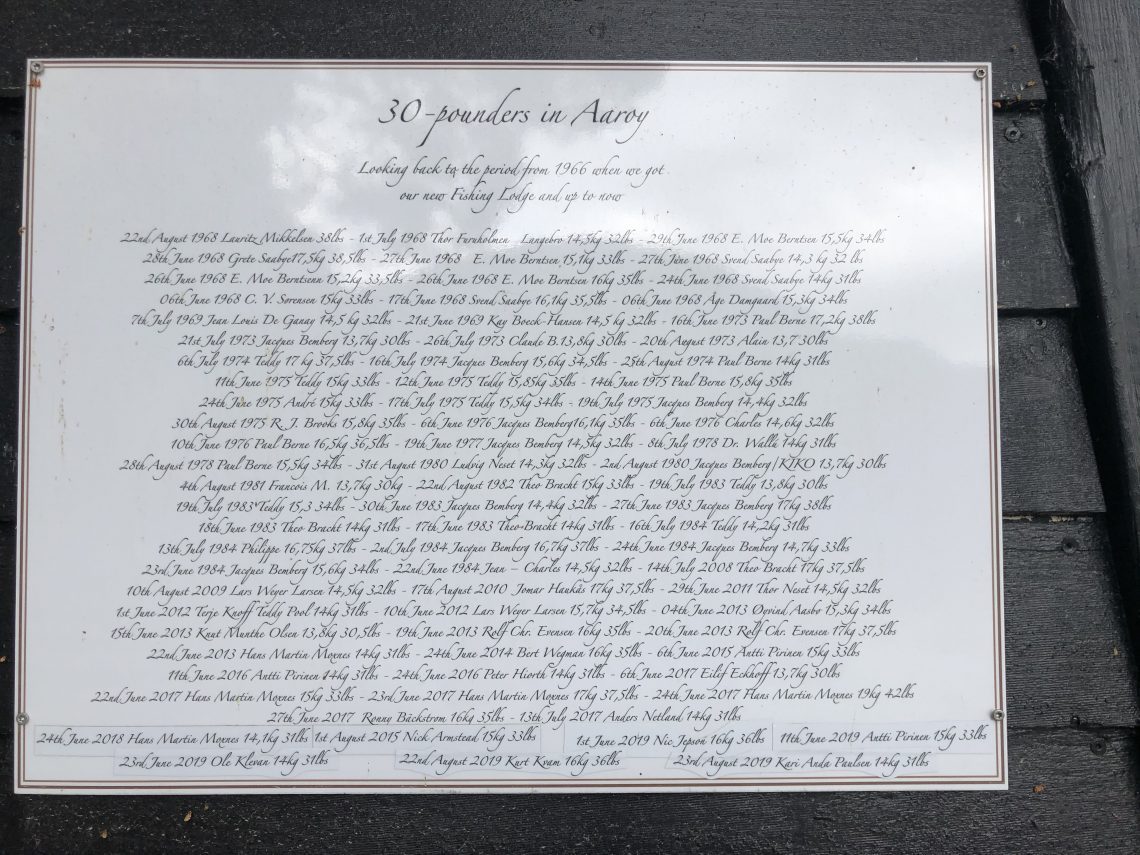 30-pounders in Aaroy
Looking back to the period from 1966 when we got
our new Fishing Lodge and up to now
22nd August 1968 Lauritz Mikkelsen 38lbs - 1st July 1968 Thor Furuholmen Langebro 14,5kg 32lbs - 29th June 1968 E. Moe Berntsen 15,5kg 34lbs
28th June 1968 Grete Saabye17,5kg 38,5lbs - 27th June 1968 E. Moe Berntsen 15,1kg 33lbs - 27th June 1968 Svend Saabye 14,3 kg 32 lbs
26th June 1968 E. Moe Berntsenn 15,2kg 33,5lbs - 26th June 1968 E. Moe Berntsen 16kg 35lbs - 24th June 1968 Svend Saabye 14kg 31lbs
06th June 1968 C. V. Sorensen 15kg 33lbs - 17th June 1968 Svend Saabye 16,1kg 35,5lbs - 06th June 1968 Åge Damgaard 15,3kg 34lbs
7th July 1969 Jean Louis De Ganay 14,5 kg 32lbs - 21st June 1969 Kay Boeck-Hansen 14,5 kg 32lbs - 16th June 1973 Paul Berne 17,2kg 38lbs
21st July 1973 Jacques Bemberg 13,7kg 30lbs - 26th July 1973 Claude B.13,8kg 30lbs - 20th August 1973 Alain 13,7 30lbs
6th July 1974 Teddy 17 kg 37,5lbs - 16th July 1974 Jacques Bemberg 15,6kg 34,5lbs - 25th August 1974 Paul Berne 14kg 31lbs
11th June 1975 Teddy 15kg 33lbs - 12th June 1975 Teddy 15,85kg 35lbs - 14th June 1975 Paul Berne 15,8kg 35lbs
24th June 1975 André 15kg 33lbs - 17th July 1975 Teddy 15,5kg 34lbs - 19th July 1975 Jacques Bemberg 14,4kg 32lbs
30th August 1975 R. J. Brooks 15,8kg 35lbs - 6th June 1976 Jacques Bemberg16,1kg 35lbs - 6th June 1976 Charles 14,6kg 32lbs
10th June 1976 Paul Berne 16,5kg 36,5lbs - 19th June 1977 Jacques Bemberg 14,5kg 32lbs - 8th July 1978 Dr. Walls 14kg 31lbs
28th August 1978 Paul Berne 15,5kg 34lbs - 31st August 1980 Ludvig Neset 14,3kg 32lbs - 2nd August 1980 Jacques Bemberg/KIKO 13,7kg 30lbs
4th August 1981 Francois M. 13,7kg 30kg - 22nd August 1982 Theo Bracht 15kg 33lbs - 19th July 1983 Teddy 13,8kg 30lbs
19th July 1983 Teddy 15,3 34lbs - 30th June 1983 Jacques Bemberg 14,4kg 32lbs - 27th June 1983 Jacques Bemberg 17kg 38lbs
18th June 1983 Theo Bracht 14kg 31lbs - 17th June 1983 Theo Bracht 14kg 31lbs - 16th July 1984 Teddy 14,2kg 31lbs
13th July 1984 Philippe 16,75kg 37lbs - 2nd July 1984 Jacques Bemberg 16,7kg 37lbs - 24th June 1984 Jacques Bemberg 14,7kg 33lbs
23rd June 1984 Jacques Bemberg 15,6kg 34lbs - 22nd June 1984 Jean – Charles 14,5kg 32lbs - 14th July 2008 Theo Bracht 17kg 37,5lbs
10th August 2009 Lars Weyer Larsen 14,5kg 32lbs - 17th August 2010 Jomar Haukås 17kg 37,5lbs - 29th June 2011 Thor Neset 14,5kg 32lbs
1st June 2012 Terje Knoff Teddy Pool 14kg 31lbs - 10th June 2012 Lars Weyer Larsen 15,7kg 34,5lbs - 04th June 2013 Øyvind Aasbø 15,3kg 34lbs
15th June 2013 Knut Munthe Olsen 13,8kg 30,5lbs - 19th June 2013 Rolf Chr. Evensen 16kg 35lbs - 20th June 2013 Rolf Chr. Evensen 17kg 37,5lbs
22nd June 2013 Hans Martin Moxnes 14kg 31lbs - 24th June 2014 Bert Wegman 16kg 35lbs - 6th June 2015 Antti Pirinen 15kg 33lbs
11th June 2016 Antti Pirinen 14kg 31lbs - 24th June 2016 Peter Hiorth 14kg 31lbs - 6th June 2017 Eilif Eckhoff 13,7kg 30lbs
22nd June 2017 Hans Martin Moxnes 15kg 33lbs - 23rd June 2017 Hans Martin Moxnes 17kg 37,5lbs - 24th June 2017 Hans Martin Moxnes 19kg 42lbs
27th June 2017 Ronny Bäckstrøm 16kg 35lbs - 13th July 2017 Anders Netland 14kg 31lbs
24th June 2018 Hans Martin Moxnes 14,1kg 31lbs 1st August 2015 Nick Armstead 15kg 33lbs 1st June 2019 Nic Jepson 16kg 36lbs 11th June 2019 Antti Pirinen 15kg 33lbs
23rd June 2019 Ole Klevan 14kg 31lbs 22nd August 2019 Kurt Kvam 16kg 36lbs 23rd August 2019 Kari Anda Paulsen 14kg 31lbs